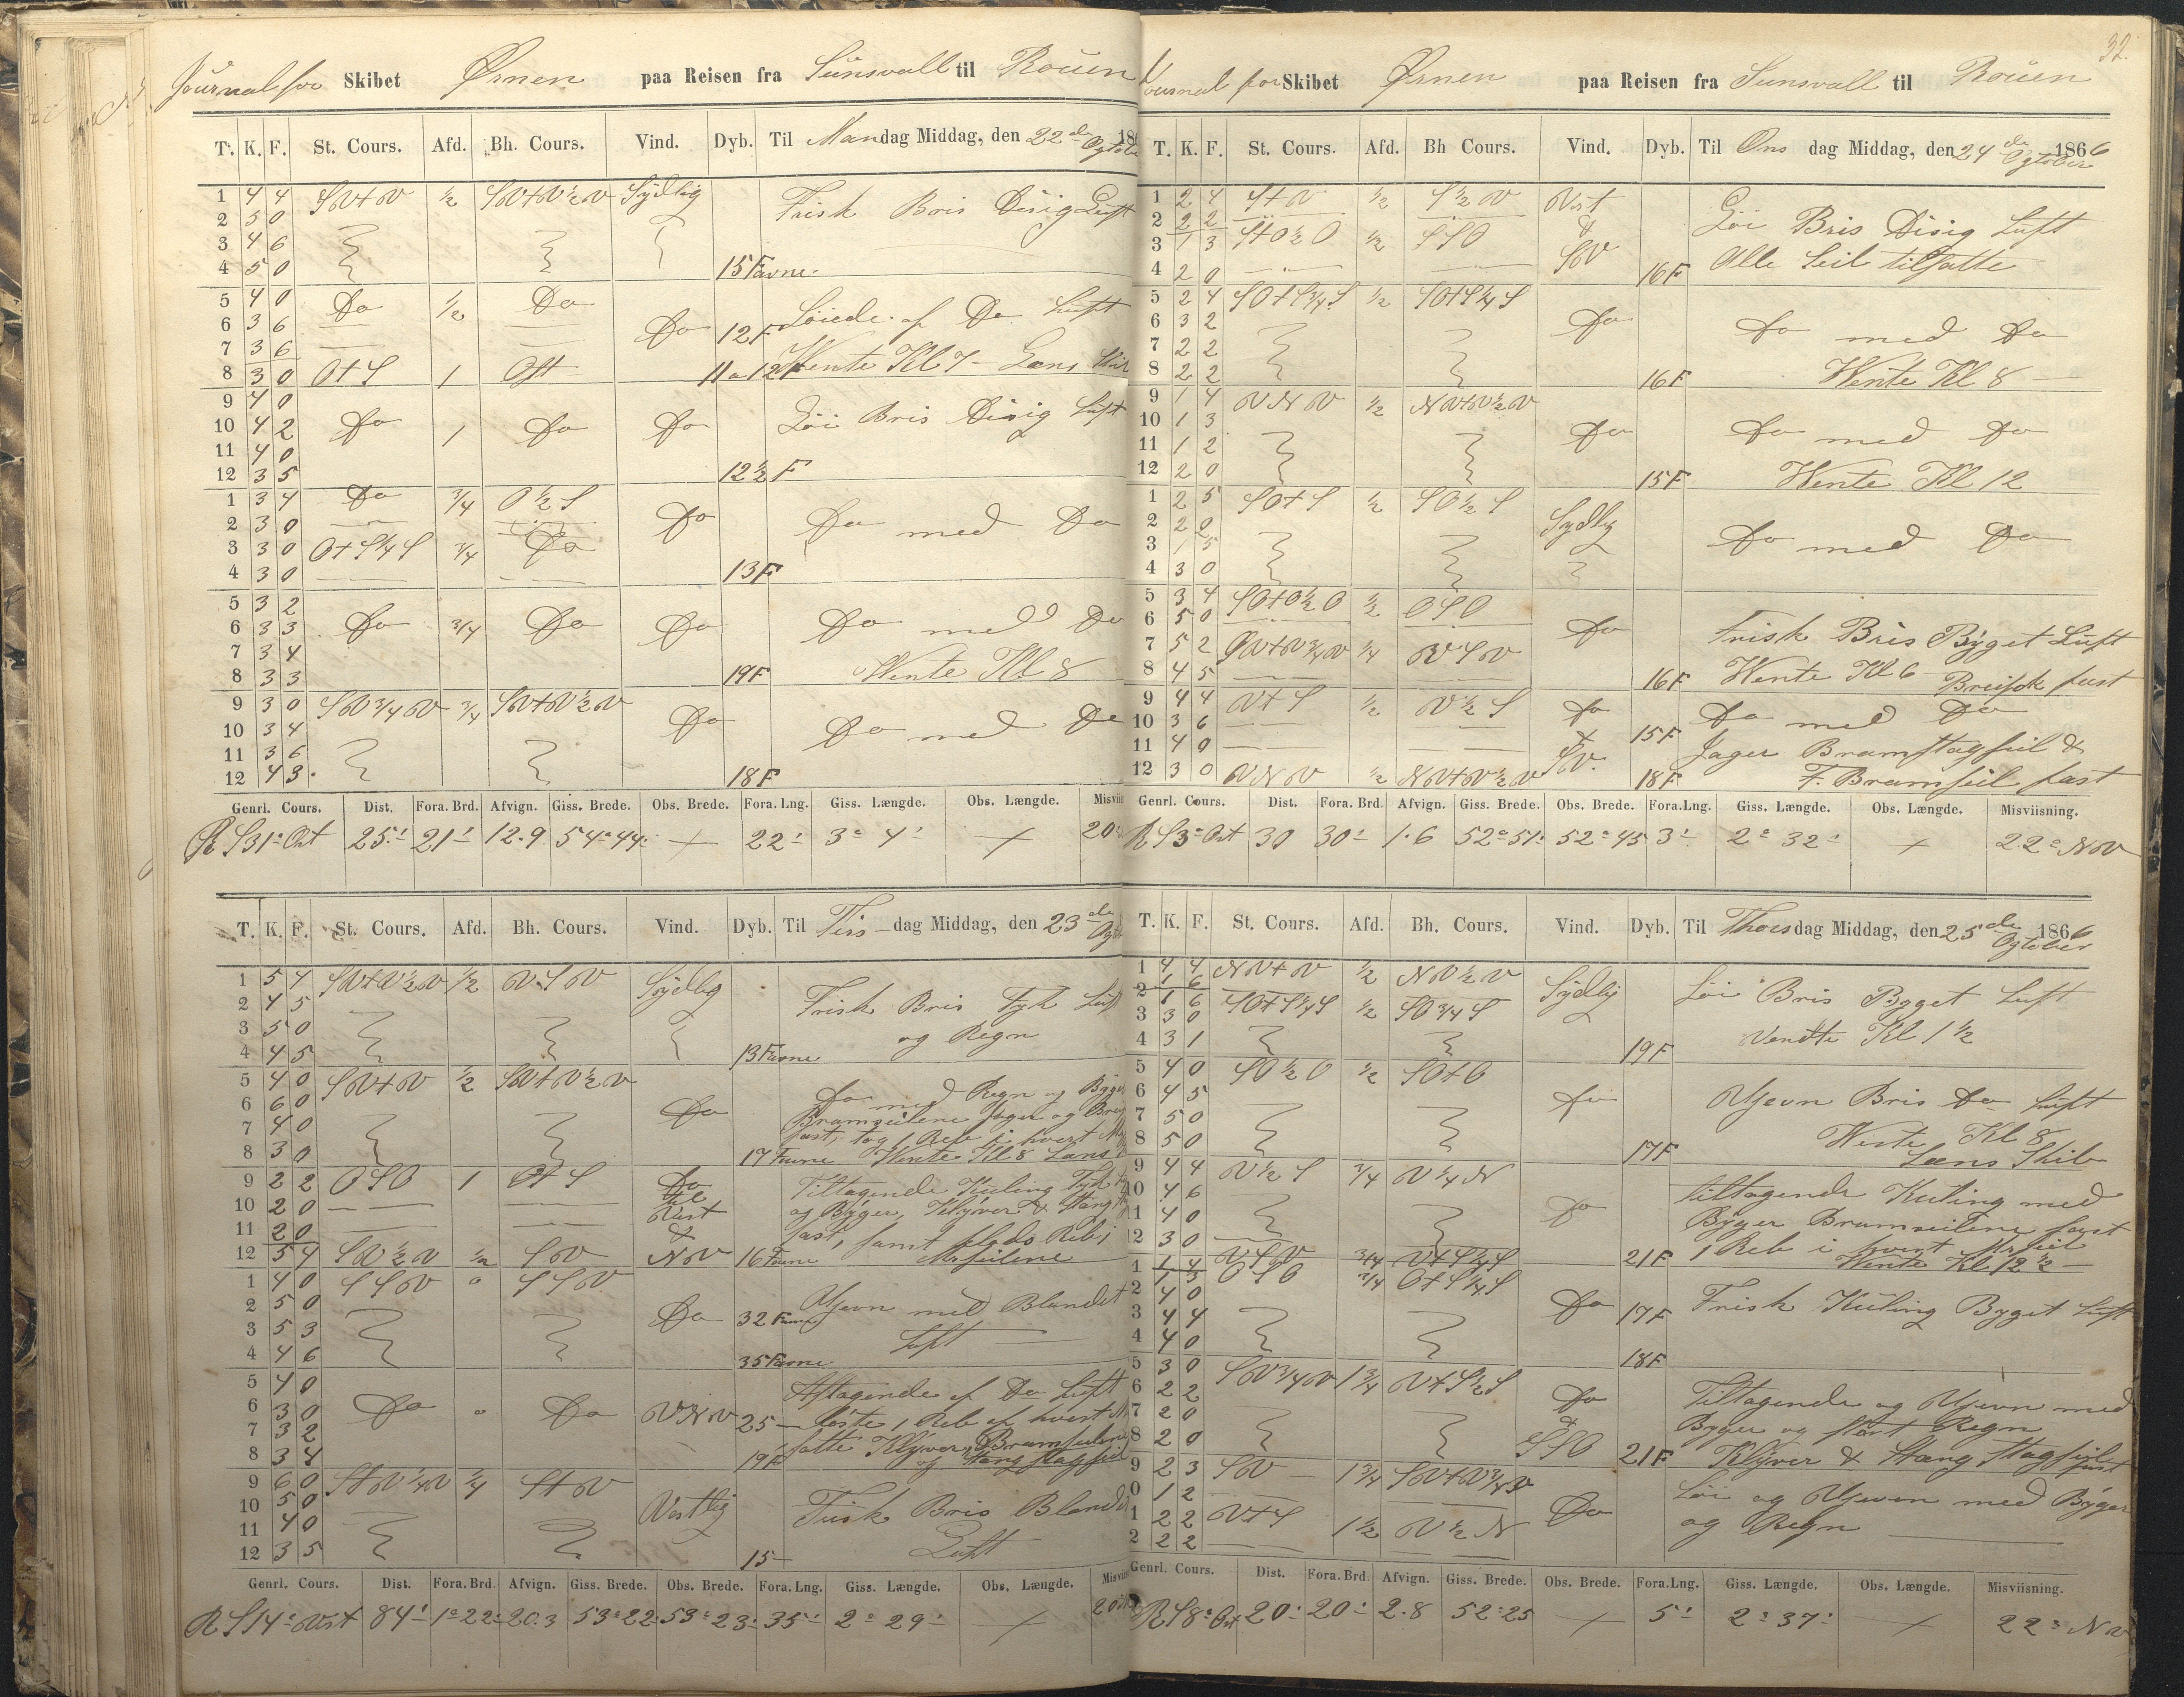 Journal for Skibet Ørnen paa Reisen fra Sunsvall til Rouen
T. K. F. St. Cours. Afd. Bh. Cours. Vind. Dyb. Til Mandag Middag, den 22de Ogtober 186
1 4 4 SV+V ½ SV+V½V Sydlig Frisk Bris Disig Luft
2 5 0
3 4 6
4 5 0 15 Favne
5 4 0 Do ½ Do
6 3 6 Do 12F Løiede af Do Luft
7 3 6
8 3 0 O+S 1 Ost 11 a 12F Wente Kl 7 - Læns
9 4 0
10 4 2 Do 1 Do Do Løi Bris Disig Luft
11 4 0
12 3 5 12½ F
1 3 4 Do ¾ O½S
2 3 0 Do Do med Do
3 3 0 O+S¼S ¾ Do
4 3 0 13F
5 3 2
6 3 3 Do ¾ Do Do Do med Do
7 3 4
8 3 3 19F Wente Kl 8
9 3 0 SV¾V ¾ SV+V½V
10 3 4 Do Do med Do
11 3 6
12 4 3 18F
Genrl. Cours. Dist. Fora. Brd. Afvign. Giss. Brede. Obs. Brede. Fora. Lng. Giss. Længde. Obs. Længde. Misvii
R S31° Ost 25' 21' 12.9 54°44' + 22' 3° 4' + 20°
T. K. F. St. Cours. Afd. Bh. Cours. Vind. Dyb. Til Tirs-dag Middag, den 23de
1 5 4 SV+V½V ½ VSV Sydlig
2 4 5 Frisk Bris Tyk Luft
3 5 0 og Regn
4 4 5 13 Favne
5 4 0 SV+V ½ SV+V½V
6 6 0 Do Do med Regn og Byger
7 4 0 Bramseilene Jager og
fast, tog 1 Reb i hvert
8 3 0 17 Favne Wente Kl 8 Læns
9 2 2 OSO 1 O+S Do Tiltagende Kuling Tyk
10 2 0 til Vest og Byger, Klyver & Stang
11 2 0 & fast, samt Reb i
12 5 4 SV½V ½ SV NV 16 Favne Mrseilene
1 4 0 SSV 0 SSV
2 5 0 Do 32 Favne Ujevn med Blandet
3 5 3 Luft
4 4 6 35 Favne
5 4 0 Aftagende af Do Luft
6 3 0 Do 0 Do VNV 25 - løste 1 Reb af hvert
7 3 2 satte Klyver, Bramseilene
8 3 4 19F og Stang stagseil
9 6 0 S+V¼V ¼ S+V
10 5 0 Vestlig Frisk Bris Blandet
11 4 0 Luft
12 3 5 15 -
Genrl. Cours. Dist. Fora. Brd. Afvign. Giss. Brede. Obs. Brede. Fora. Lng. Giss. Længde. Obs. Længde. Misvii
R S14° Vest 84' 1°22' 20.3 53°22' 53°23' 35' 2° 29' + 20°
32.
Journal for Skibet Ørnen paa Reisen fra Sunsvall til Rouen
T. K. F. St. Cours. Afd. Bh Cours. Vind. Dyb. Til Onsdag Middag, den 24de Ogtober 1866
1 2 4 S+V ½ S½V Vest
2 2 2 & Løi Bris Disig Luft
3 1 3 S+O½O ½ SSO SV
4 2 0 16F Alle Seil tilsatte
5 2 4 SO+S¾S ½ SO+S¼S
6 3 2 Do Do med Do
7 2 2
8 2 2 16F Wente Kl 8
9 1 4 VNV ½ NV+V½V
10 1 3 Do Do med Do
11 1 2
12 2 0 15F Wente Kl 12
1 2 5 SO+S ½ SO½S
2 2 0 Sydlig
3 1 5 Do med Do
4 3 0
5 3 4 SO+O½O ½ OSO
6 5 0 Do Frisk Bris Byget Luft
7 5 2 SV+V¾V ¼ VSV
8 4 5 16F Wente Kl 6 Breifok fast
9 4 4 V+S ½ V½S Do Do med Do
10 3 6 & 15F
11 4 0 SV. Jager Bramstagseil &
12 3 0 VNV ½ NV+V½V 18F F. Bramseil fast
Genrl. Cours. Dist. Fora. Brd. Afvign. Giss. Brede. Obs. Brede. Fora.Lng. Giss. Længde. Obs. Længde. Misviisning.
R S3° Ost 30 30' 1.6 52°51' 52°45 3' 2° 32' + 22° NV
T. K. F. St. Cours. Afd. Bh. Cours. Vind. Dyb. Til Thorsdag Middag, den 25de Ogtober 1866
1 4 4 NV+V ½ NV½V Sydlig Løi Bris Byget Luft
1 6
2 1 6 SO+S¼S ½ SO¾S
3 3 0 Vendte Kl 1½
4 3 1 19F
5 4 0 SO½O ½ SO+O
6 4 5 Do Ujevn Bris Do Luft
7 5 0
8 5 0 17F Wente Kl 8
Læns Skib
9 4 4 V½S ¾ V¼N
10 4 6 Do tiltagende Kuling med
11 4 0 Byger Bramseilene fast
12 3 0 21F 1 Reb i hvert Mrseil
1 1 4 VSV ¾ V+S¼S Wente Kl 12½
1 3 OSO ¾ O+S¼S
2 4 0 Do 17F Frisk Kuling Byget Luft
3 4 4
4 4 0 18F
5 3 0 SV¾V 1¾ V+S½S
6 2 2 Do Tiltagende og Ujevn med
7 2 0 & Byger og stært Regn
8 2 0 SSO 21F Klyver & Stang Stagseil fast
9 2 3 SV 1¾ SV+V¾V
0 1 2 Do Løi og Ujevn med Byger
1 2 2 V+S 1½ V½N og Regn
2 2 2
Genrl. Cours. Dist. Fora. Brd. Afvign. Giss. Brede. Obs. Brede. Fora.Lng. Giss. Længde. Obs. Længde. Misviisning.
R S8° Ost 20' 20' 2.8 52°25 + 5' 2° 37' + 22° NV